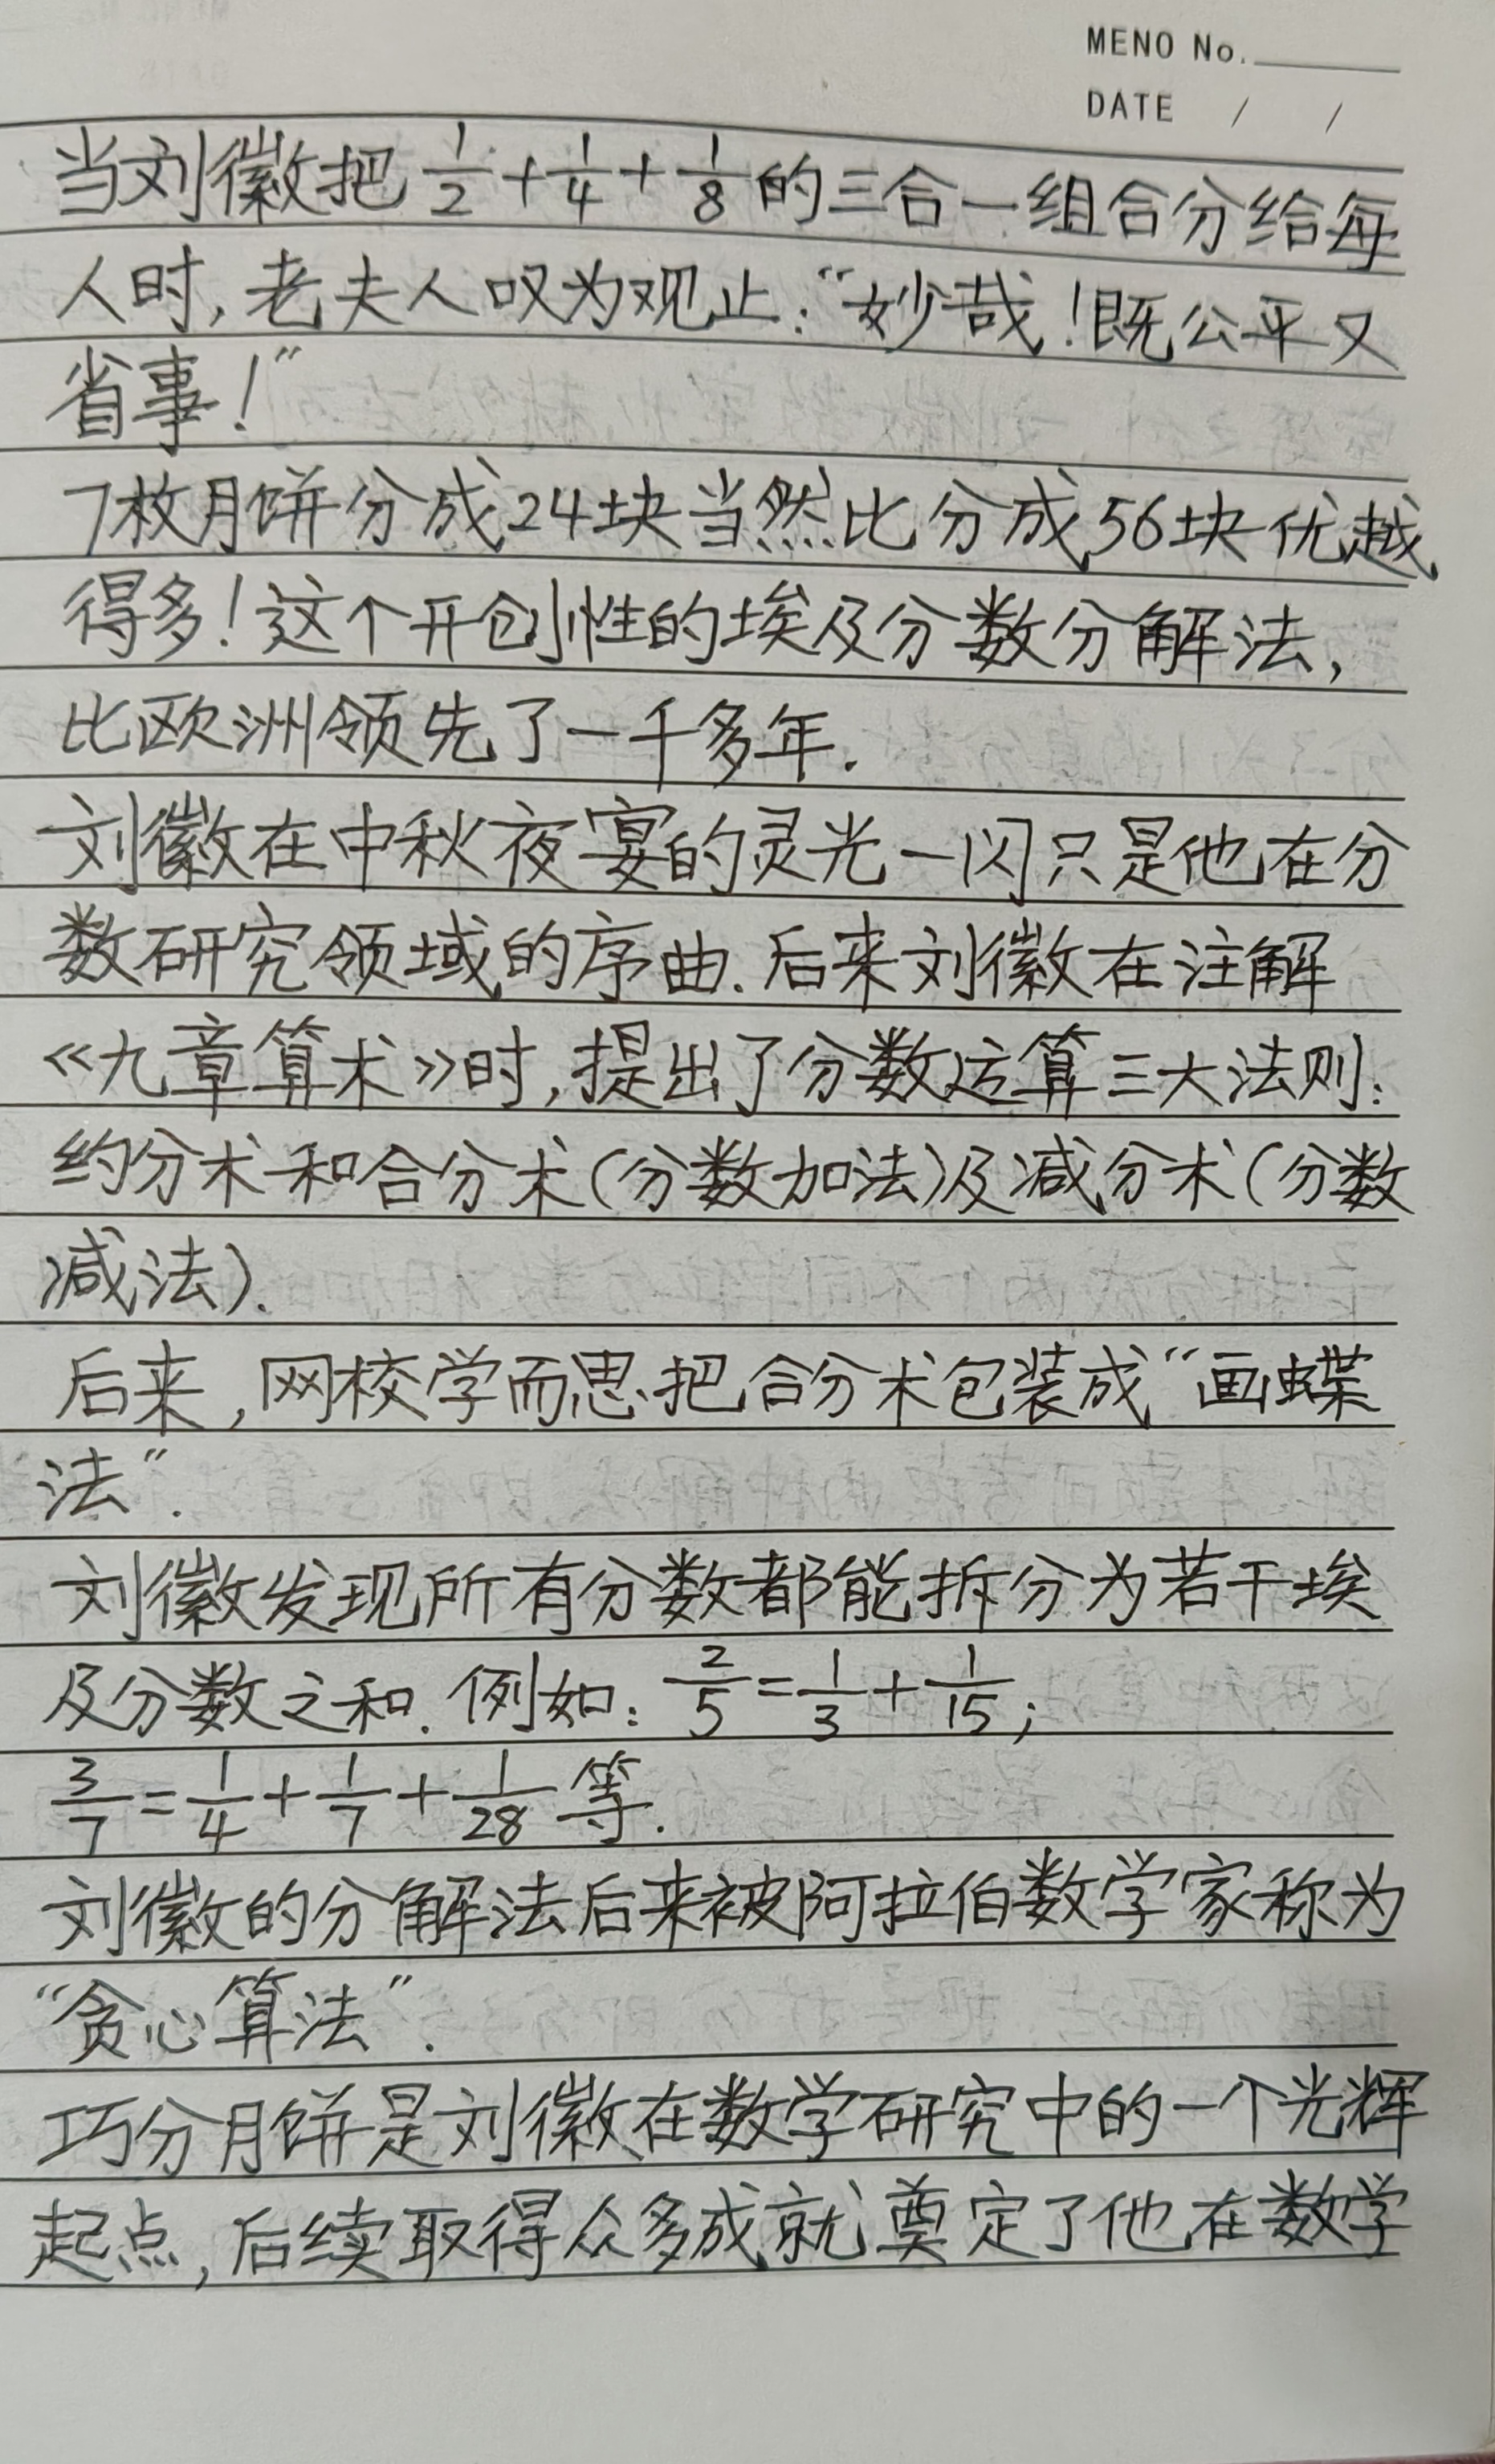 MENO No.
DATE / /
当刘徽把 1/2 + 1/4 + 1/8 的三合一组合分给每
人时, 老夫人叹为观止: “妙哉!既公平又
省事!”
7枚月饼分成24块当然比分成56块优越
得多!这个开创性的埃及分数分解法,
比欧洲领先了一千多年.
刘徽在中秋夜宴的灵光一闪只是他在分
数研究领域的序曲. 后来刘徽在注解
《九章算术》时, 提出了分数运算三大法则:
约分术和合分术(分数加法)及减分术(分数
减法).
后来, 网校学而思把合分术包装成“画蝶
法”.
刘徽发现所有分数都能拆分为若干埃
及分数之和. 例如: 2/5 = 1/3 + 1/15;
3/7 = 1/4 + 1/7 + 1/28 等.
刘徽的分解法后来被阿拉伯数学家称为
“贪心算法”.
巧分月饼是刘徽在数学研究中的一个光辉
起点, 后续取得众多成就奠定了他在数学